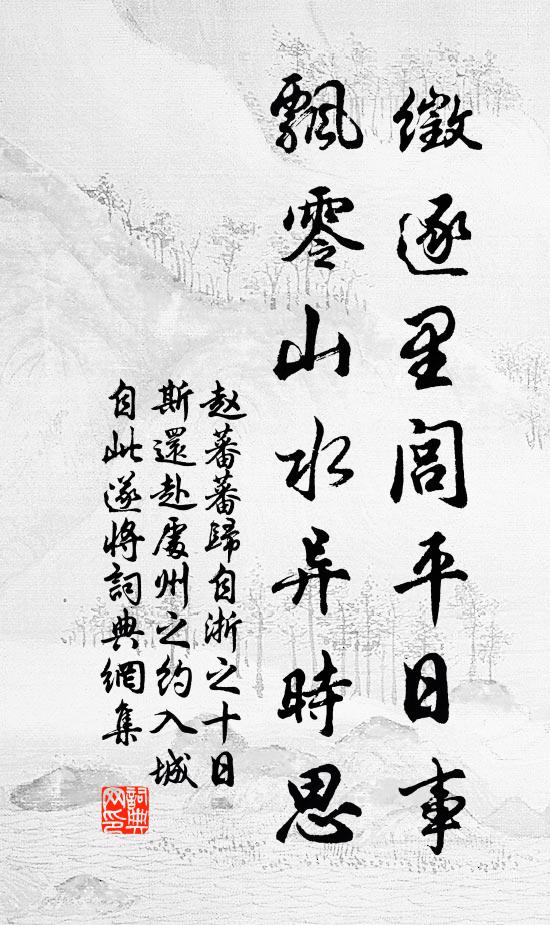 徵逐里閭平日事
飄零山水异時思
赵蕃蕃歸自浙之十日
斯還赴處州之約入城
自此遂將詞典網集
詞典网印